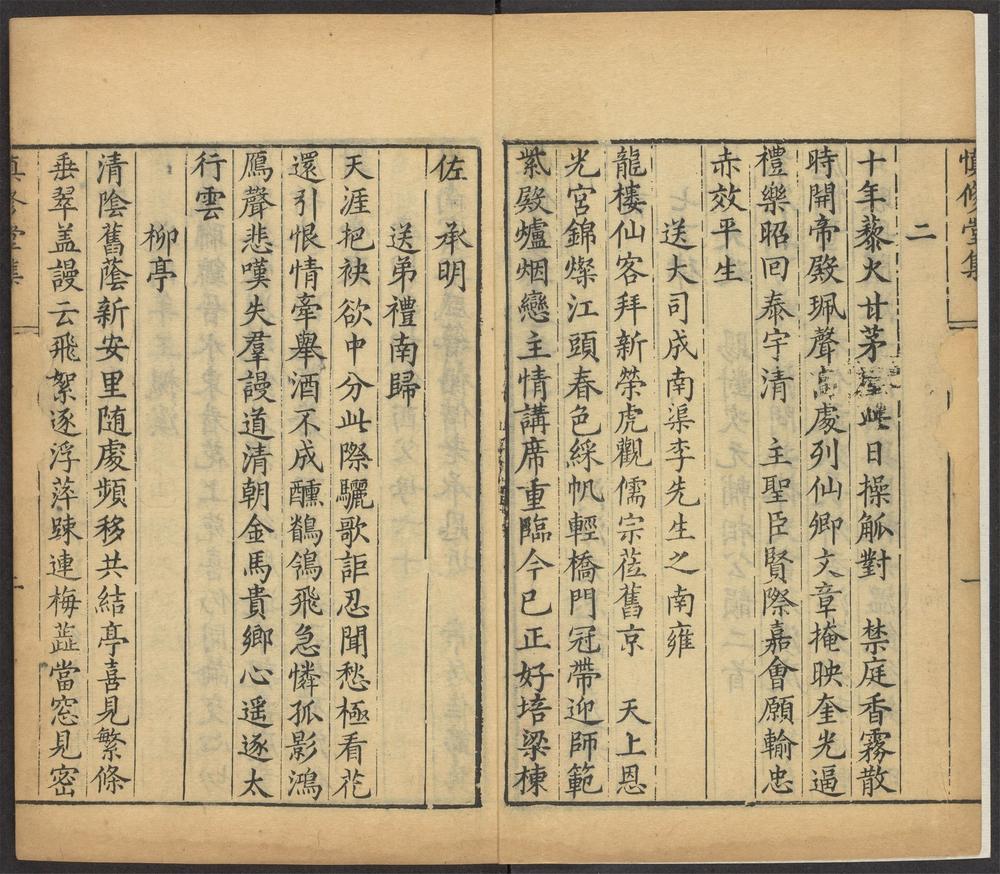 慎修堂集 一
二
十年藜火廿茅此日操觚對 禁庭香霧散
時開帝殿珮聲高處列仙卿文章掩映奎光逼
禮樂昭回泰宇清 主聖臣賢際嘉會願輸忠
赤效平生
送大司成南渠李先生之南雍
龍樓仙客拜新榮虎觀儒宗蒞舊京 天上恩
光宮錦燦江頭春色綵帆輕橋門冠帶迎師範
紫殿爐烟戀主情講席重臨今已正好培梁棟
佐承明
送弟禮南歸
天涯把袂欲中分此際驪歌詎忍聞愁極看花
還引恨情牽舉酒不成醺鶺鴒飛急憐孤影鴻
鴈聲悲嘆失羣謾道清朝金馬貴鄉心遥逐太
行雲
柳亭
清陰舊蔭新安里随處頻移共結亭喜見繁條
垂翠盖謾云飛絮逐浮萍踈連梅蘂當窓見密
慎修堂集 二